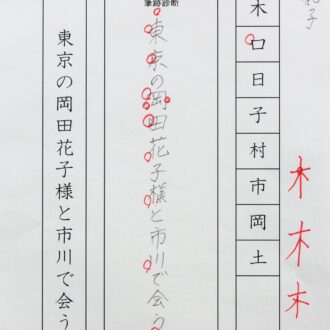 花子
木
口
日
子
村
市
岡
土
木
木
木
筆跡診断
東京の岡田花子様と市川で会う
東京の岡田花子様と市川で会う